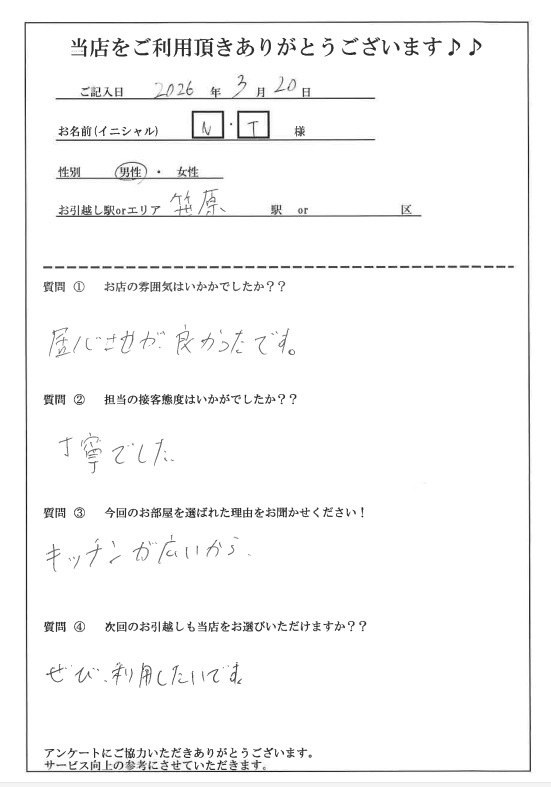 当店をご利用頂きありがとうございます♪♪
ご記入日 2026 年 3 月 20 日
お名前(イニシャル) N ・ T 様
性別 男性 ・ 女性
お引越し駅orエリア 笹原 駅 or 区
質問 ① お店の雰囲気はいかかでしたか??
居心させが良かったです。
質問 ② 担当の接客態度はいかがでしたか??
丁寧でした
質問 ③ 今回のお部屋を選ばれた理由をお聞かせください!
キッチンが広いから.
質問 ④ 次回のお引越しも当店をお選びいただけますか??
ぜひ、利用したいです。
アンケートにご協力いただきありがとうございます。
サービス向上の参考にさせていただきます。